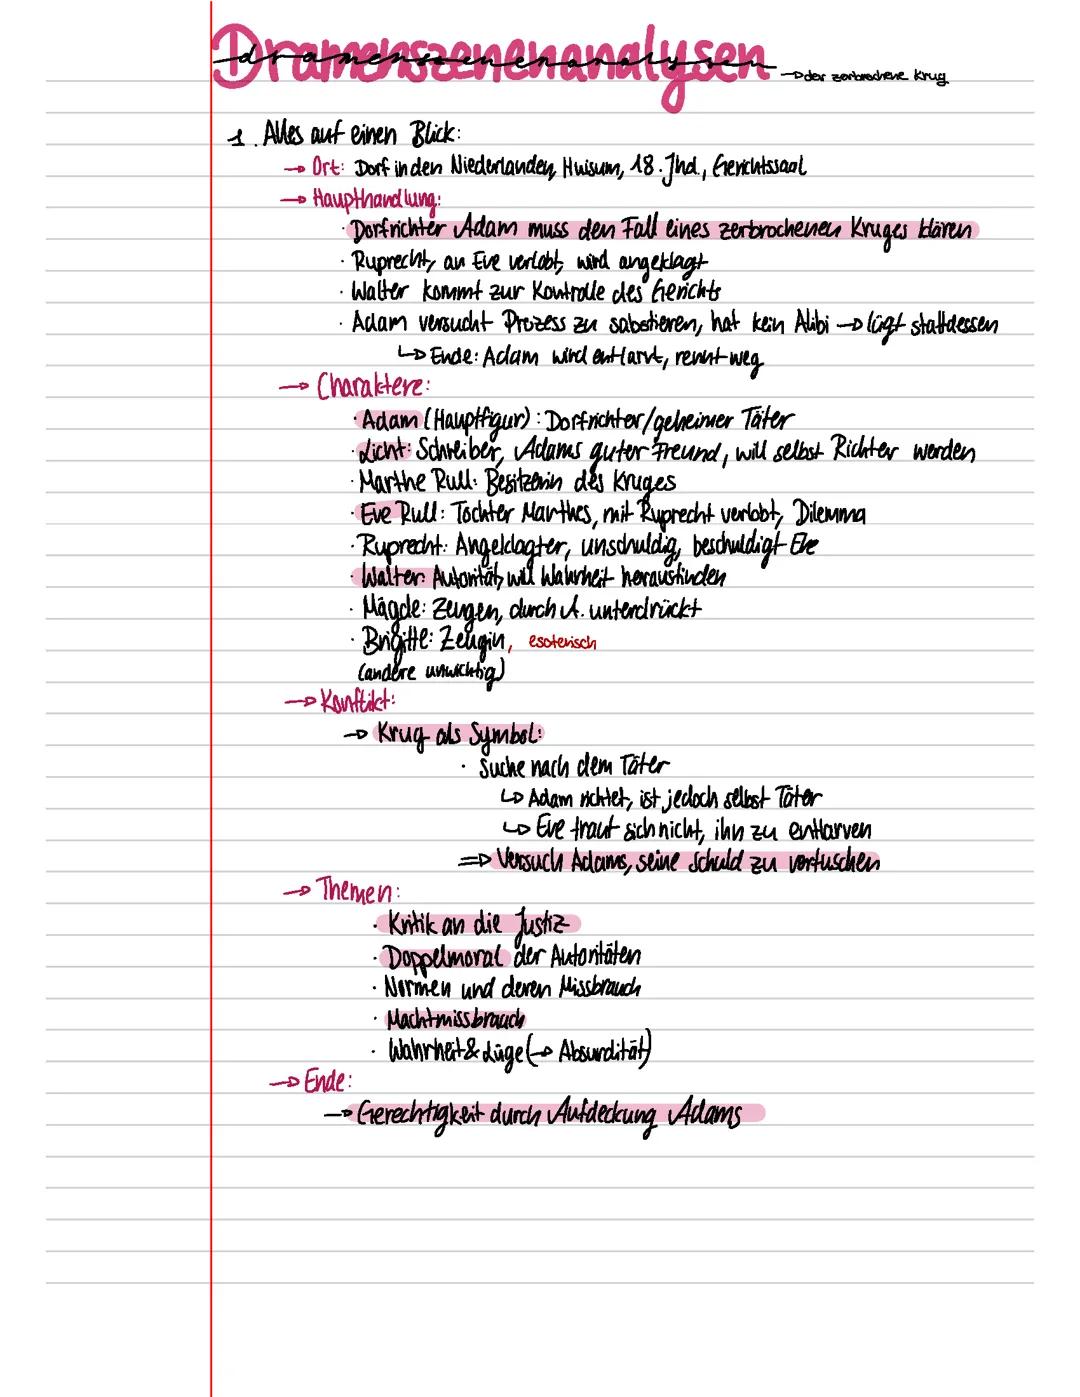 Dramenszenenanalysen
dramenszenenanalysen → der zerbrochene Krug
1. Alles auf einen Blick:
→ Ort: Dorf in den Niederlanden, Huisum, 18. Jhd., Gerichtssaal
→ Haupthandlung:
· Dorfrichter Adam muss den Fall eines zerbrochenen Kruges klären
· Ruprecht, an Eve verlobt, wird angeklagt
· Walter kommt zur Kontrolle des Gerichts
· Adam versucht Prozess zu sabotieren, hat kein Alibi → lügt stattdessen
↳ Ende: Adam wird entlarvt, rennt weg
→ Charaktere:
· Adam (Hauptfigur): Dorfrichter/geheimer Täter
· Licht: Schreiber, Adams guter Freund, will selbst Richter werden
· Marthe Rull: Besitzerin des Kruges
· Eve Rull: Tochter Marthes, mit Ruprecht verlobt, Dilemma
· Ruprecht: Angeklagter, unschuldig, beschuldigt Eve
· Walter: Autorität, will Wahrheit herausfinden
· Mägde: Zeugen, durch A. unterdrückt
· Brigitte: Zeugin, esoterisch
(andere unwichtig)
→ Konflikt:
→ Krug als Symbol:
· Suche nach dem Täter
↳ Adam richtet, ist jedoch selbst Täter
↳ Eve traut sich nicht, ihn zu entlarven
⇒ Versuch Adams, seine Schuld zu vertuschen
→ Themen:
· Kritik an die Justiz
· Doppelmoral der Autoritäten
· Normen und deren Missbrauch
· Machtmissbrauch
· Wahrheit & Lüge (→ Absurdität)
→ Ende:
→ Gerechtigkeit durch Aufdeckung Adams